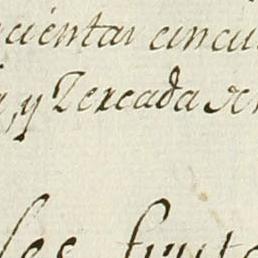 cientas cincu
, y Zercada de
les frut